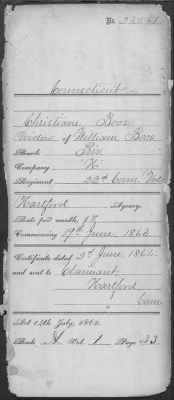 No. 23561
Connecticut
Christiane Boos
Widow of William Boos
Rank Priv.
Company K
Regiment 22d Conn Vols
Hartford Agency.
Rate per month, $8
Commencing 19th June, 1863
Certificate dated 2d June, 1864
and sent to Claimant
Hartford
Conn
Act 14th July, 1862.
Book A Vol. 1 Page 33